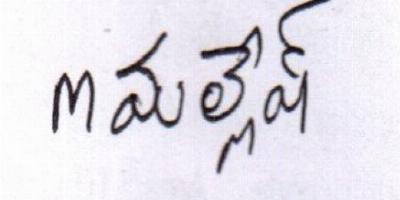 M మల్లేష్